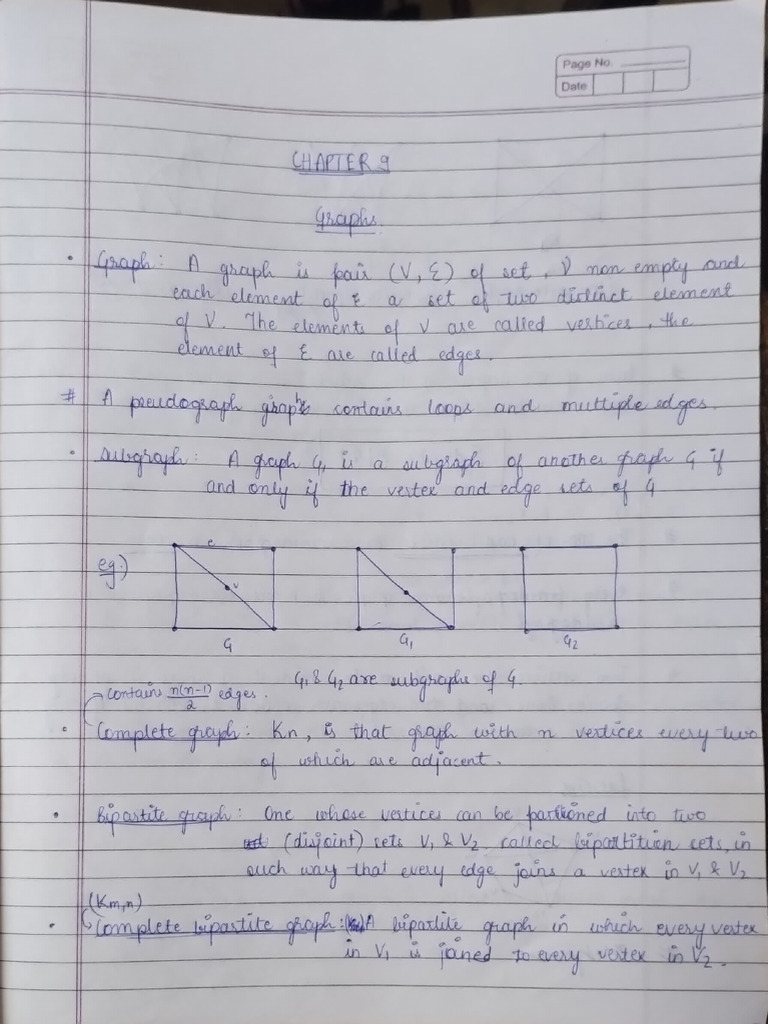 Page No.
Date
CHAPTER 9
Graphs
• Graph: A graph is pair (V, E) of set, V non empty and
each element of E a set of two distinct element
of V. The elements of V are called vertices, the
element of E are called edges.
# A pseudograph graph contains loops and multiple edges.
• Subgraph: A graph G1 is a subgraph of another graph G if
and only if the vertex and edge sets of G
eg.) e
v
G G1 G2
G1 & G2 are subgraphs of G.
contains n(n-1)/2 edges.
• Complete graph: Kn, is that graph with n vertices every two
of which are adjacent.
• Bipartite graph: One whose vertices can be partioned into two
(disjoint) sets V1 & V2 called bipartition sets, in
such way that every edge joins a vertex in V1 & V2
(Km,n)
• Complete bipartite graph: A bipartite graph in which every vertex
in V1 is joined to every vertex in V2.